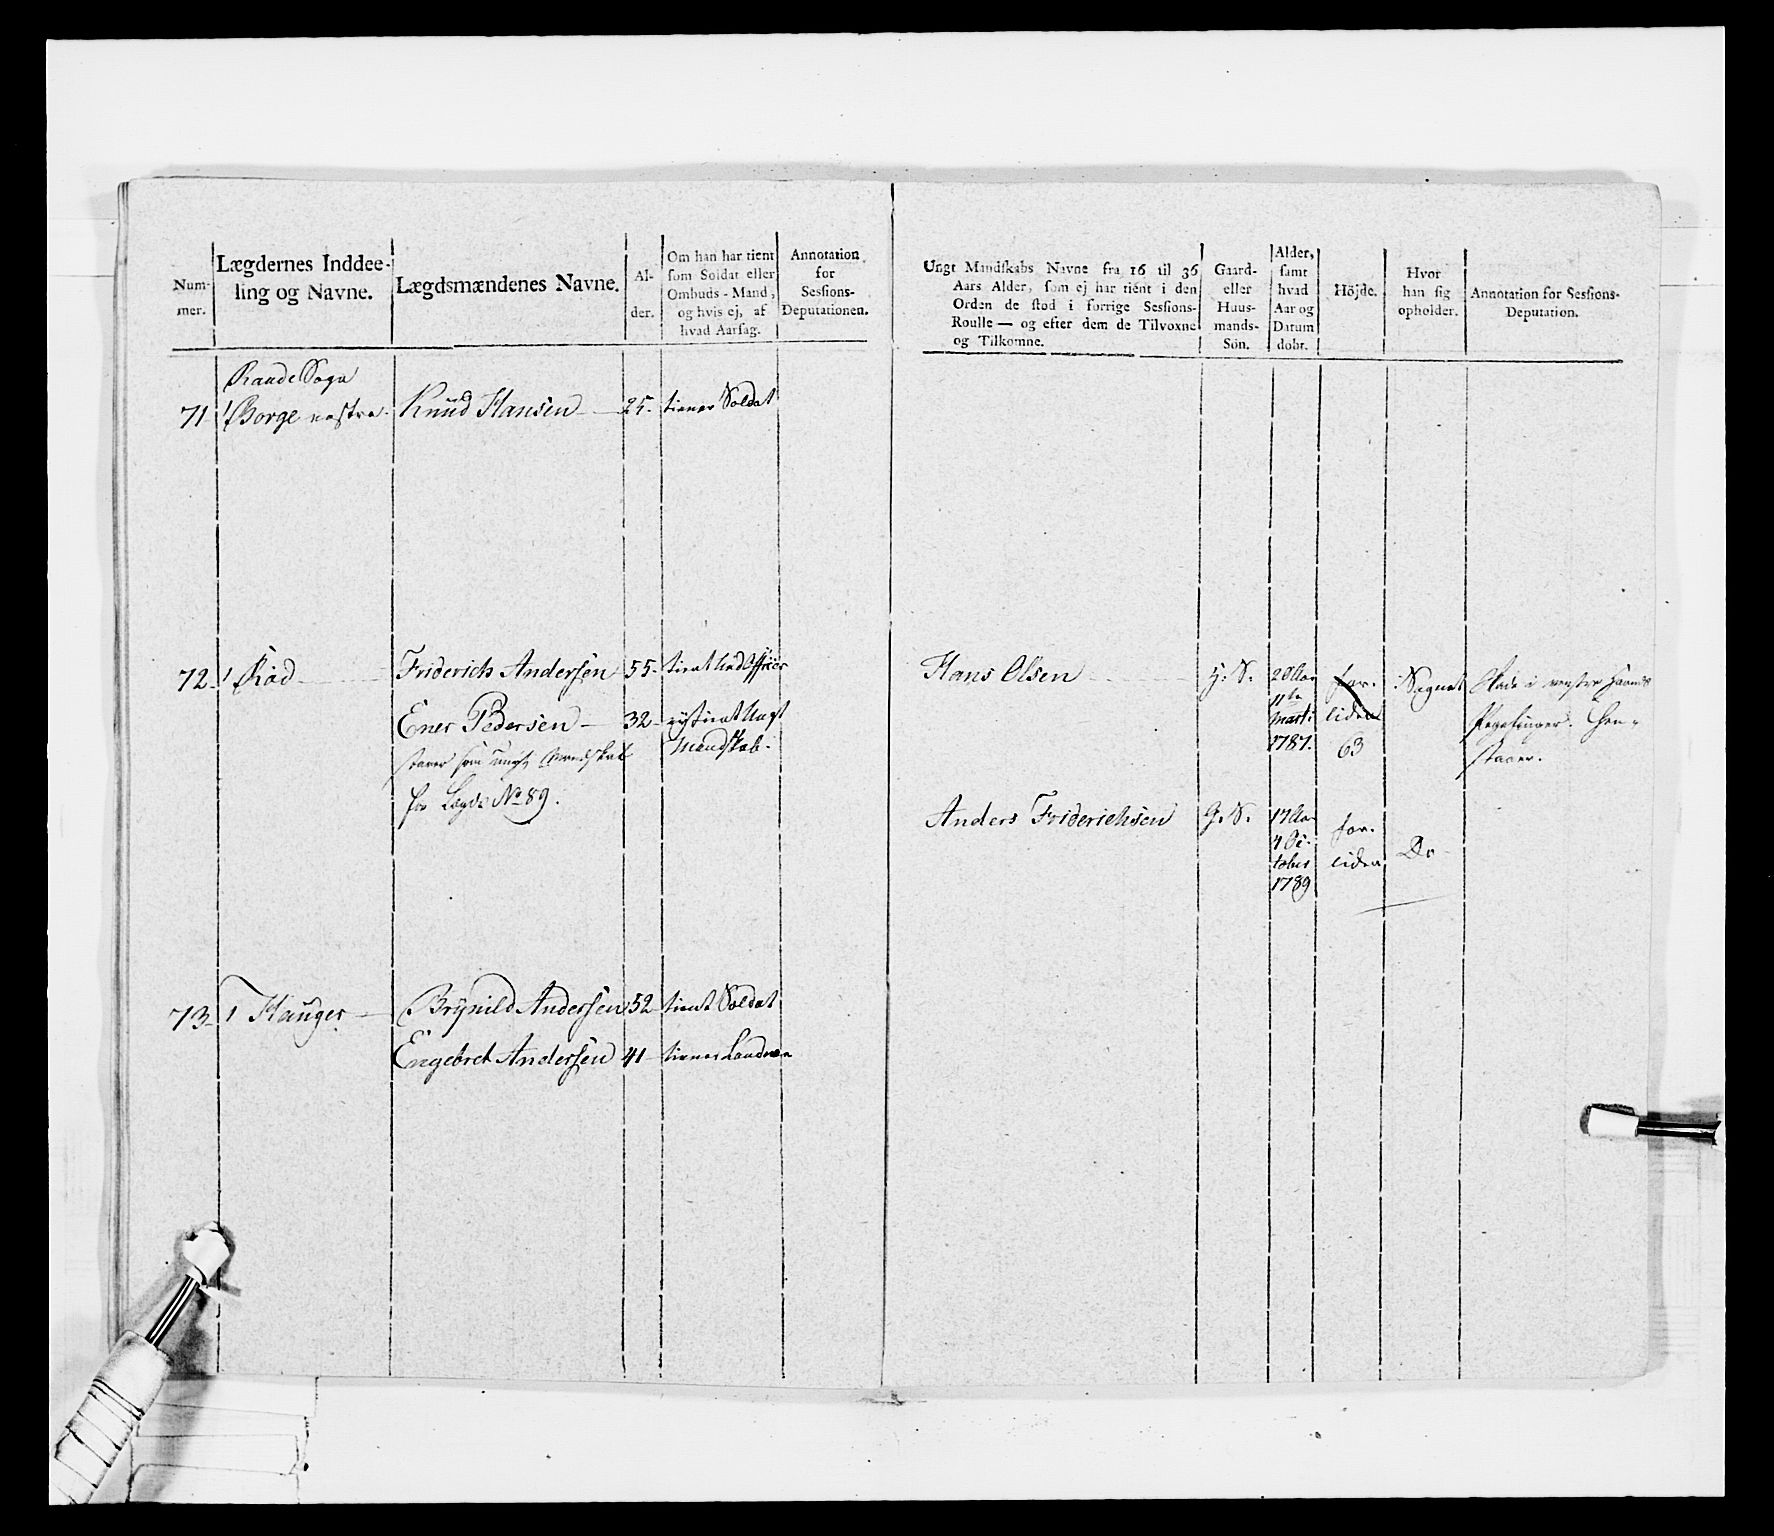 Num-
mer.
Lægdernes Inddee-
ling og Navne.
Lægdsmændenes Navne.
Al-
der.
Om han har tient
som Soldat eller
Ombuds-Mand,
og hvis ej, af
hvad Aarsag.
Annotation
for
Sessions-
Deputationen.
Ungt Mandskabs Navne fra 16 til 36
Aars Alder, som ej har tient i den
Orden de stod i forrige Sessions-
Roulle — og efter dem de Tilvoxne
og Tilkomne.
Gaard-
eller
Huus-
mands-
Sön.
Alder,
samt
hvad
Aar og
Datum
dobt.
Höjde.
Hvor
han sig
opholder.
Annotation for Sessions-
Deputation.
Raade Sogn
71 1 Borge nestre Knud Hansen 25. tiener Soldat
72 1 Röd Friderich Andersen 55. tient UndOfficer
Ener Pedersen 32 ej tient Ungt
Mandskab.
staaer som ungt Mandskab
for Lægd No 89.
Hans Olsen H. S. 20 Aar
11te
Marti
1787.
for-
liden
63
Sognet
Skade i venstre Haands
Pegefinger. Hen-
staaer.
Anders Friderichsen G. S. 17 Aar
4 Oc-
tober
1789
for-
liden
Do
73 1 Hauger Brynild Andersen 52 tient Soldat
Engebret Andersen 41 tiener Landværn